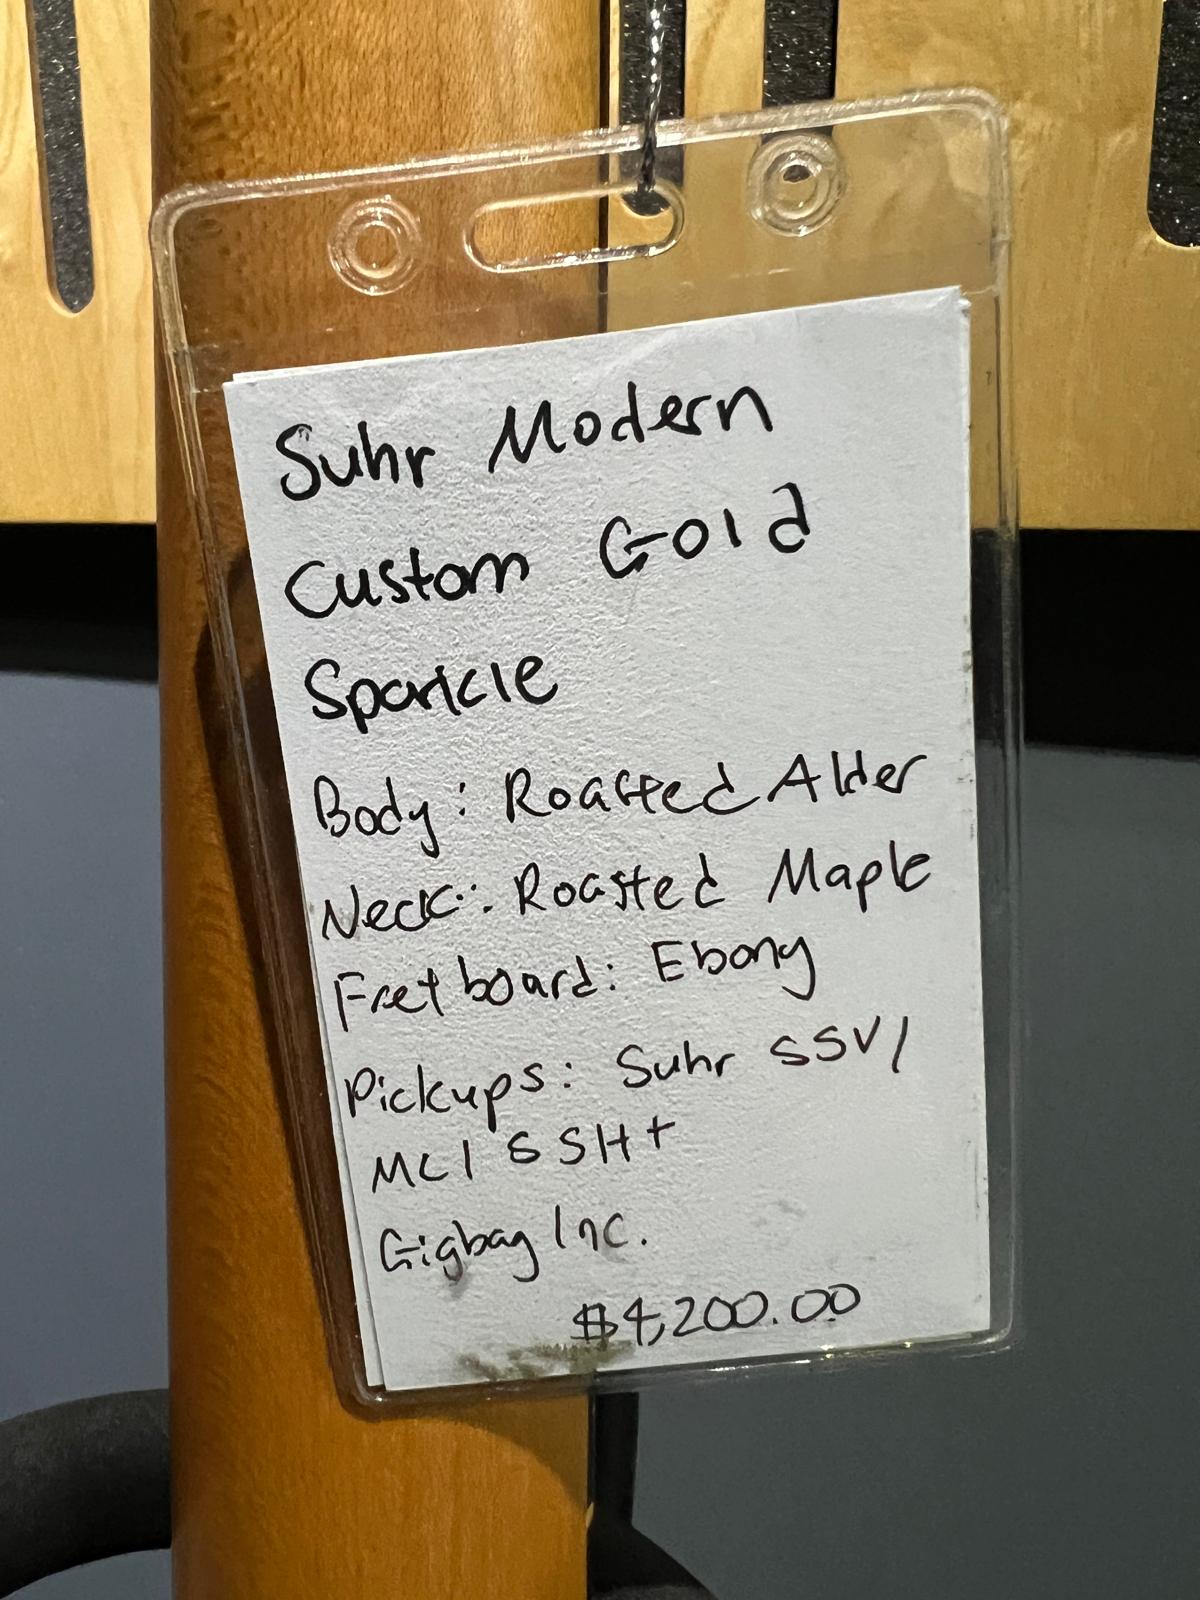 Suhr Modern
Custom Gold
Sparkle
Body: Roasted Alder
Neck: Roasted Maple
Fretboard: Ebony
Pickups: Suhr SSV/
MCI SSH+
Gigbag Inc.
$4,200.00